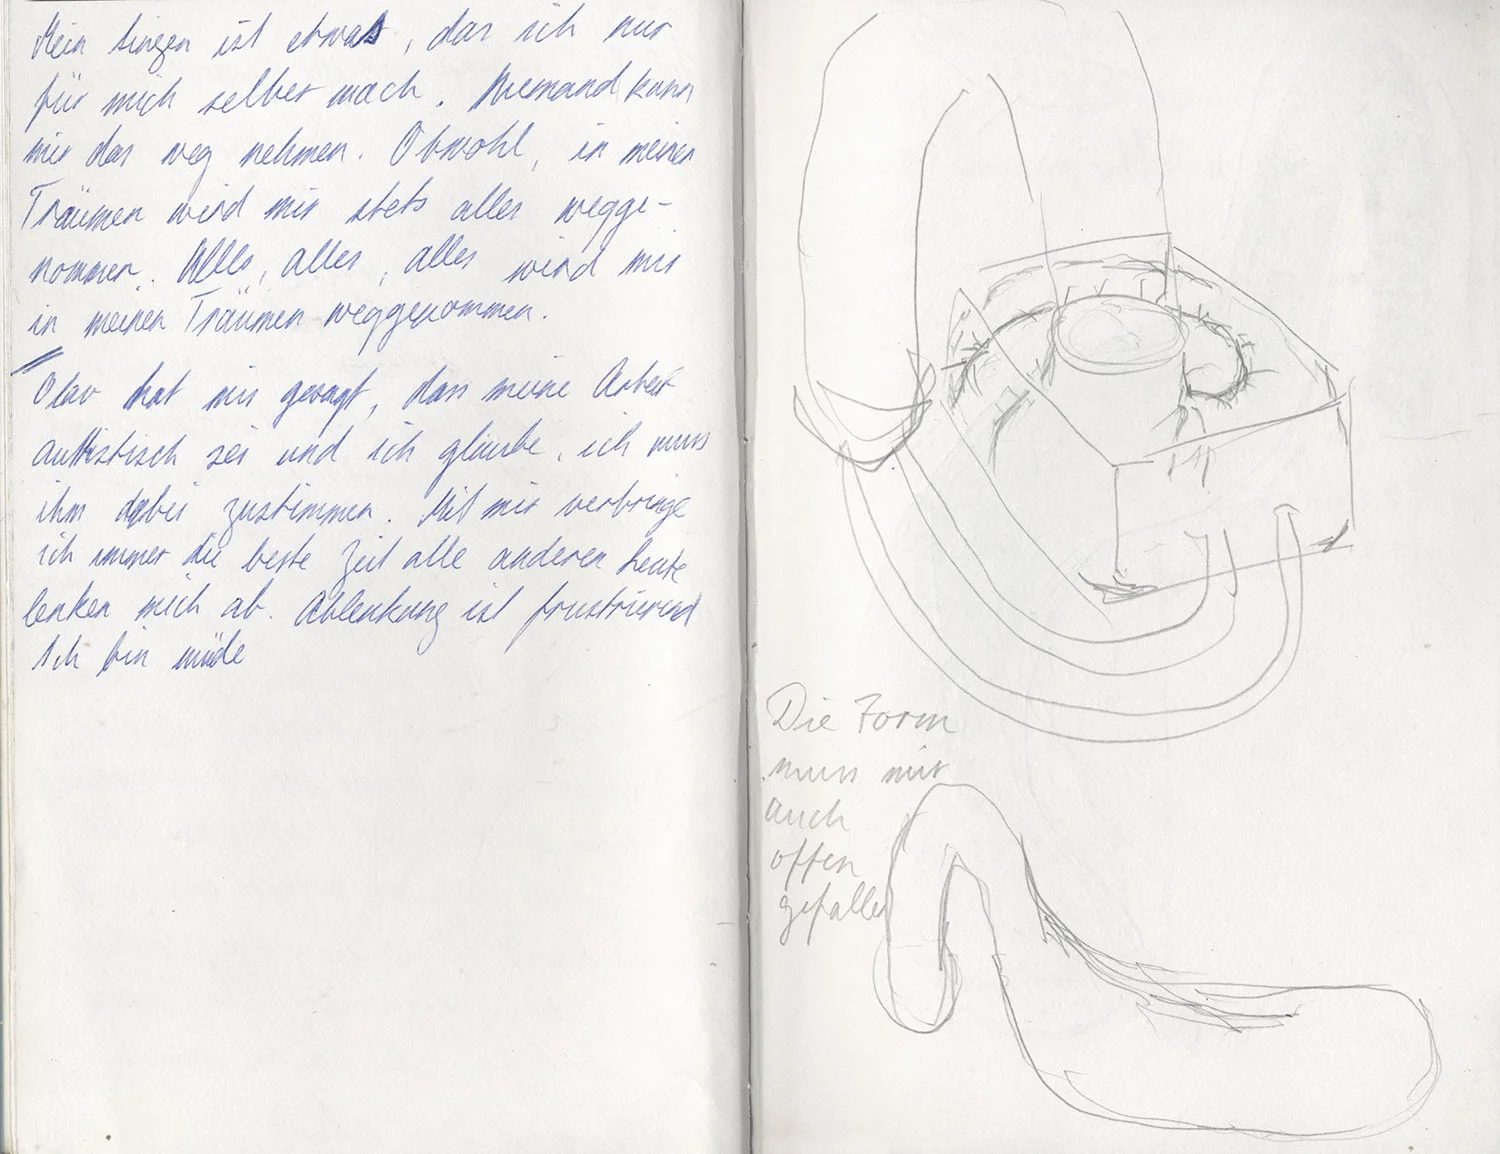 Mein Singen ist etwas, das ich nur
für mich selber mach. Niemand kann
mir das weg nehmen. Obwohl, in meinen
Träumen wird mir stets alles wegge-
nommen. Alles, alles, alles wird mir
in meinen Träumen weggenommen.
Olav hat mir gesagt, dass meine Arbeit
autistisch sei und ich glaube, ich muss
ihm dabei zustimmen. Mit mir verbringe
ich immer die beste Zeit alle anderen Leute
lenken mich ab. Ablenkung ist frustrierend
Ich bin müde
Die Form
muss mir
auch
offen
gefallen